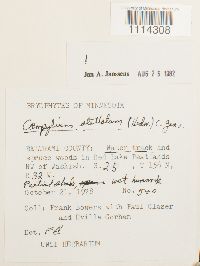 1114308
Jan A. Janssens AUG 25 1982
BRYOPHYTES OF MINNESOTA
Campylium stellatum (Hedw.) C. Jens.
BELTRAMI COUNTY: Water track and
spruce woods in Red Lake Peatlands
NW of Waskish. T. 154 N,
R. 32 W.
wet hummock
October 21, 1978 No.
Coll: Frank Bowers with Paul Glaser
and Eville Gorham
Det. FB
UWSP HERBARIUM